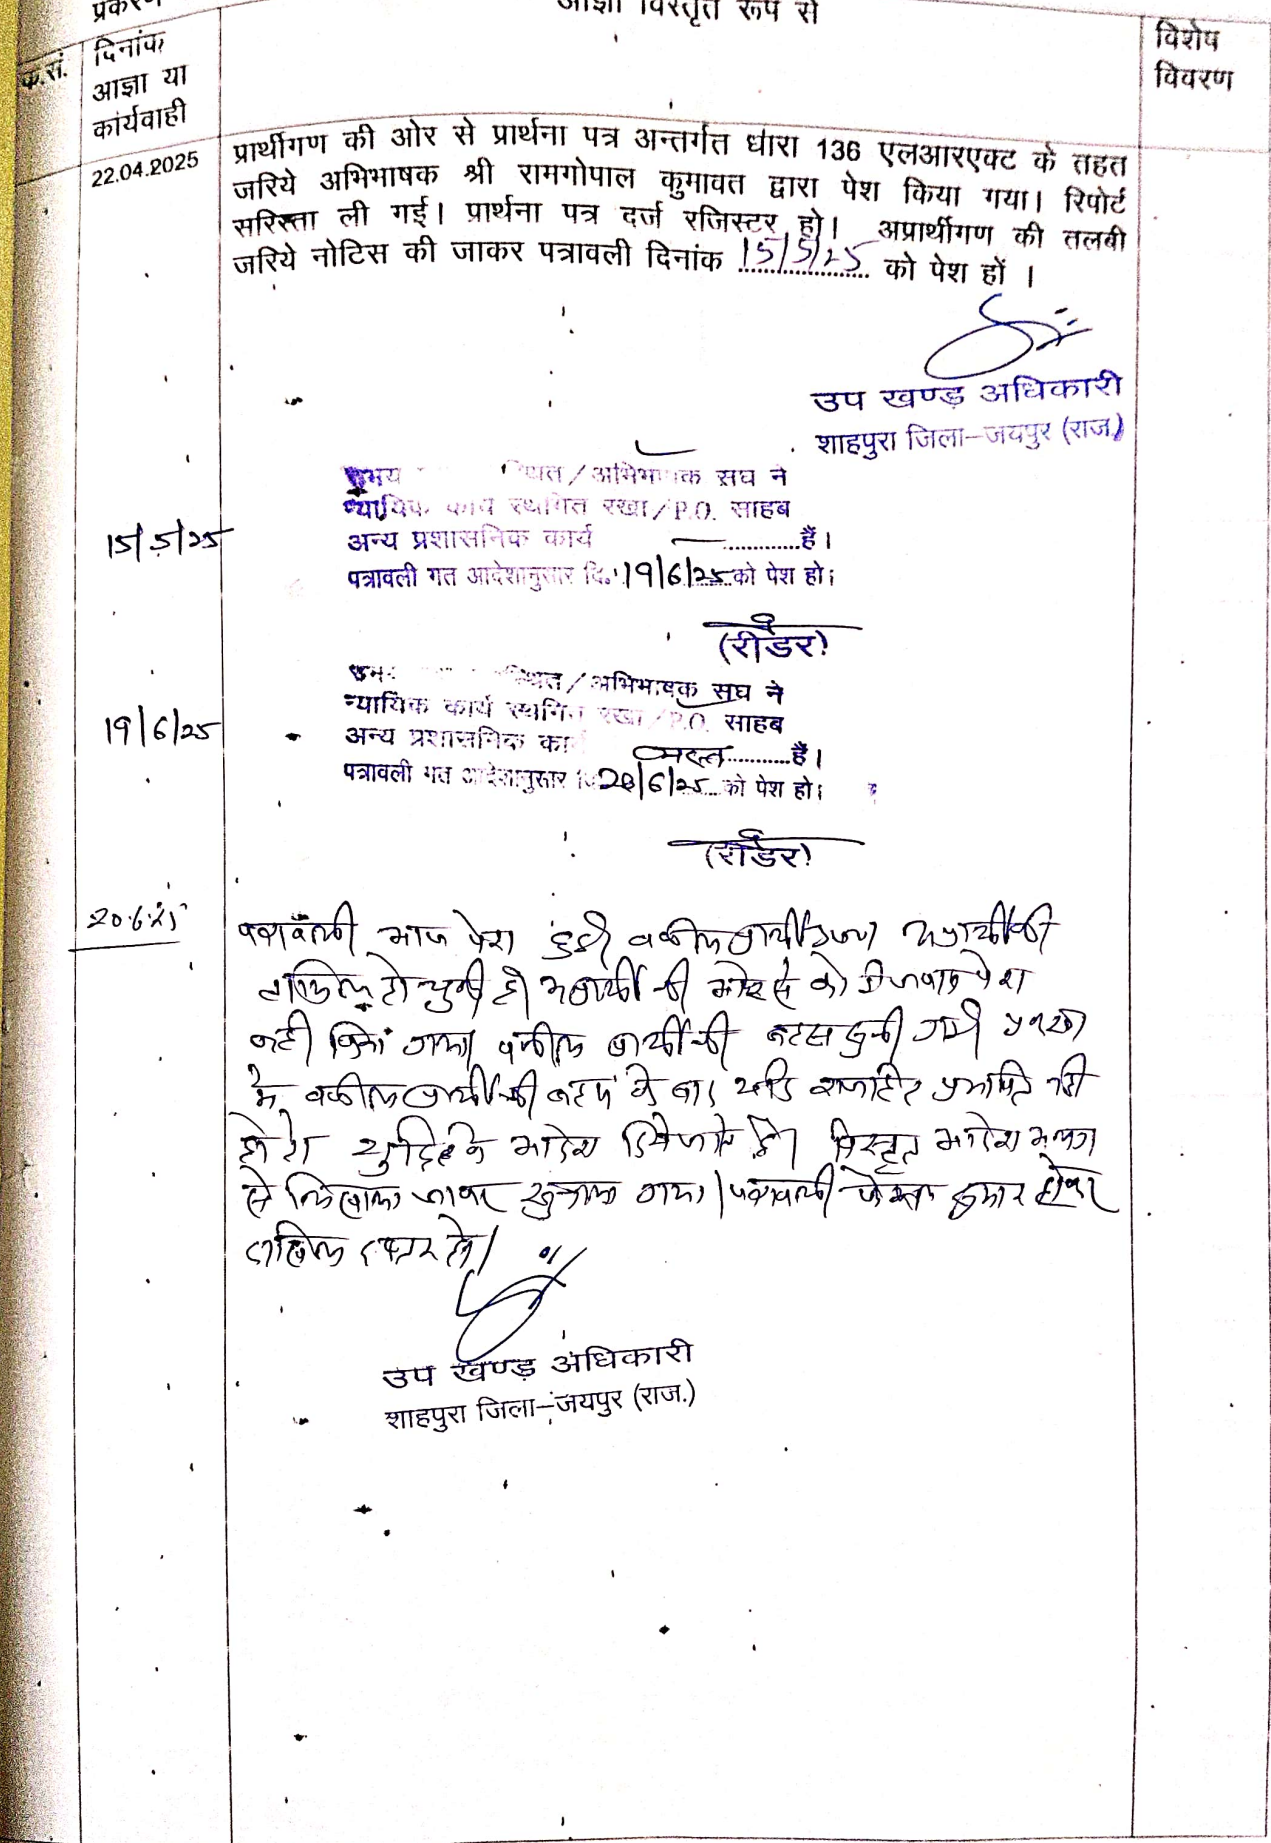 आज्ञा विस्तृत रूप से
प्रकरण
क.सं.
दिनांक
आज्ञा या
कार्यवाही
विशेष
विवरण
22.04.2025
प्रार्थीगण की ओर से प्रार्थना पत्र अन्तर्गत धारा 136 एलआरएक्ट के तहत
जरिये अभिभाषक श्री रामगोपाल कुमावत द्वारा पेश किया गया। रिपोर्ट
सरिस्ता ली गई। प्रार्थना पत्र दर्ज रजिस्टर हो। अप्रार्थीगण की तलबी
जरिये नोटिस की जाकर पत्रावली दिनांक 15/5/25 को पेश हों ।
उप खण्ड अधिकारी
शाहपुरा जिला–जयपुर (राज.)
15/5/25
उभय / अभिभाषक संघ ने
न्यायिक कार्य स्थगित रखा/P.O. साहब
अन्य प्रशासनिक कार्य ............हैं।
पत्रावली गत आदेशानुसार दि. 19/6/25 को पेश हो।
(रीडर)
19/6/25
/ अभिभाषक संघ ने
न्यायिक कार्य स्थगित रखा/P.O. साहब
अन्य प्रशासनिक कार्य व्यस्त ...........हैं।
पत्रावली गत आदेशानुसार 20/6/25 को पेश हो।
(रीडर)
20.6.25
पत्रावली आज पेश हुई। वकील प्रार्थी अप्रार्थी की
तामिल हो चुकी है। अप्रार्थी की ओर से कोई जवाब पेश
नही किया गया। वकील प्रार्थी की बहस सुनी गयी
वकील प्रार्थी की बहस के बाद राजहित प्रभावित नही
होने से शुद्धि के आदेश दिये जाते है। विस्तृत आदेश अलग
से लिखाया जाकर सुनाया गया। पत्रावली फैसल शुमार होकर
दाखिल दफ्तर हो।
उप खण्ड अधिकारी
शाहपुरा जिला–जयपुर (राज.)